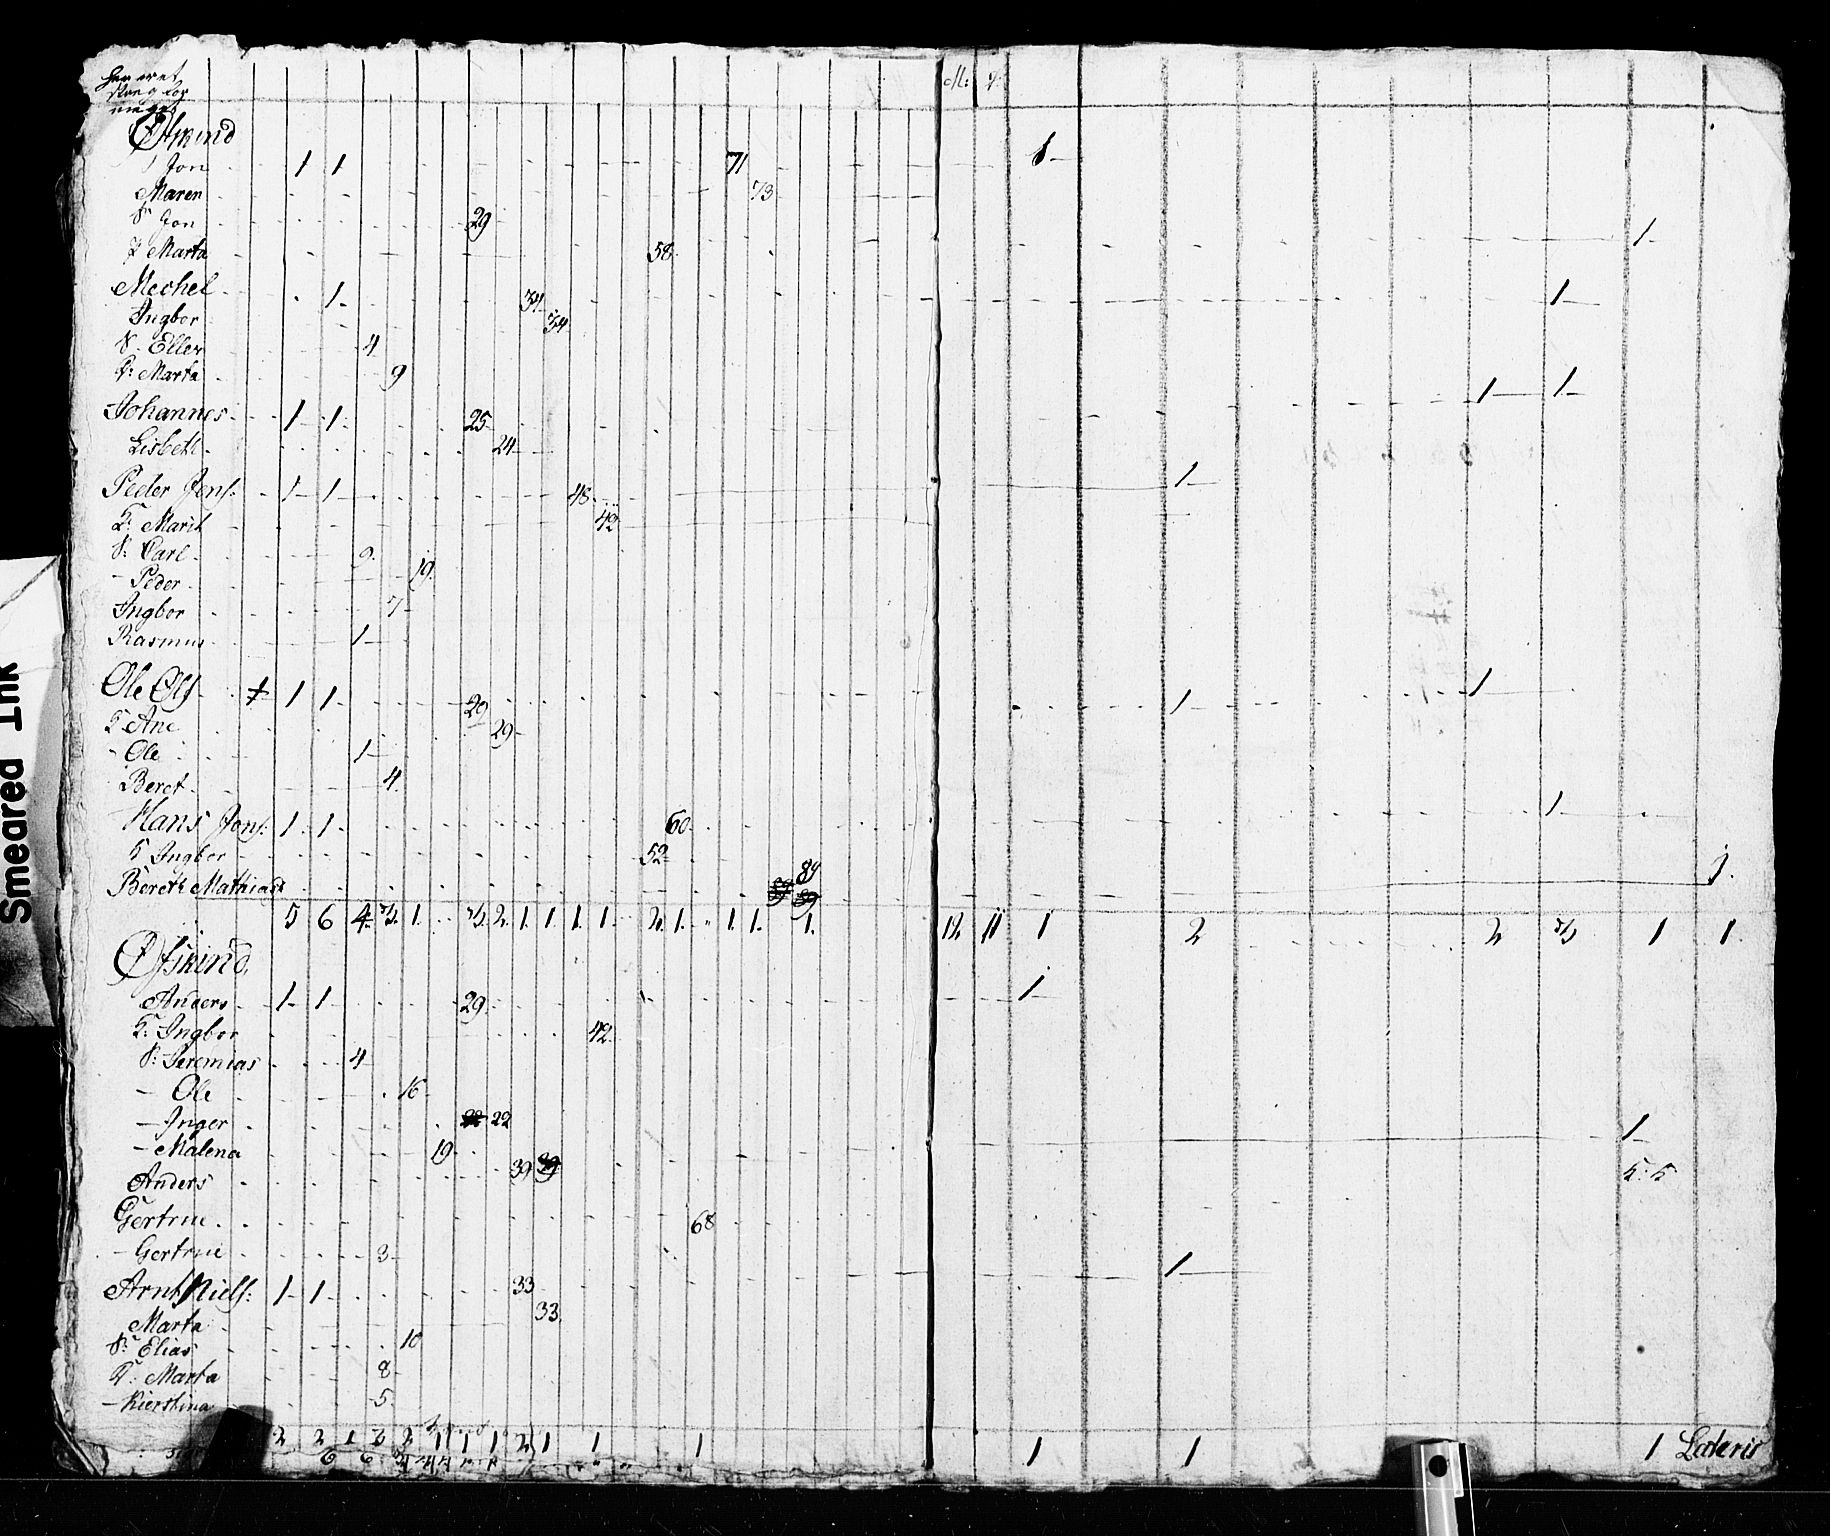 M: q.
Øfskind
Jon 1 1 71 1
Maren 73
S. Jon 29 1
Marta 58
Mechel 1 34 1
Ingbor 34
S. Eller 4
Marta 9
Johannes 1 1 25 1 1
Lisbeth 24
Peder Jons: 1 1 48 1
K: Marit 42
S: Carl 9
- Peder 19
Ingbor 7
Rasmus 1
Ole Ols 1 1 29 1 1
K Ane 29
- Ole 1
Beret 4
Hans Jons: 1 1 60 1
K Ingbor 52
Bereth Mathiasd 89 1.
5 6 4 3 1 3 2 1 1 1 1 2 1 1 1 1 12 11 1 2 2 3 1 1
Øfskind
Anders 1 1 29 1
K: Ingbor 42
S: Jeremias 4
- Ole 16
- Inger 22 1
- Malena 19
Anders 39
Gertrue 68
- Gertrue 3
Arnt Niels: 1 1 33 1
Marta 33
S: Elias 10
Marta 8
- Kierstina 5
2 2 1 3 2 1 1 1 2 1 1 1 1 1 1 Lateris
Smeared Ink